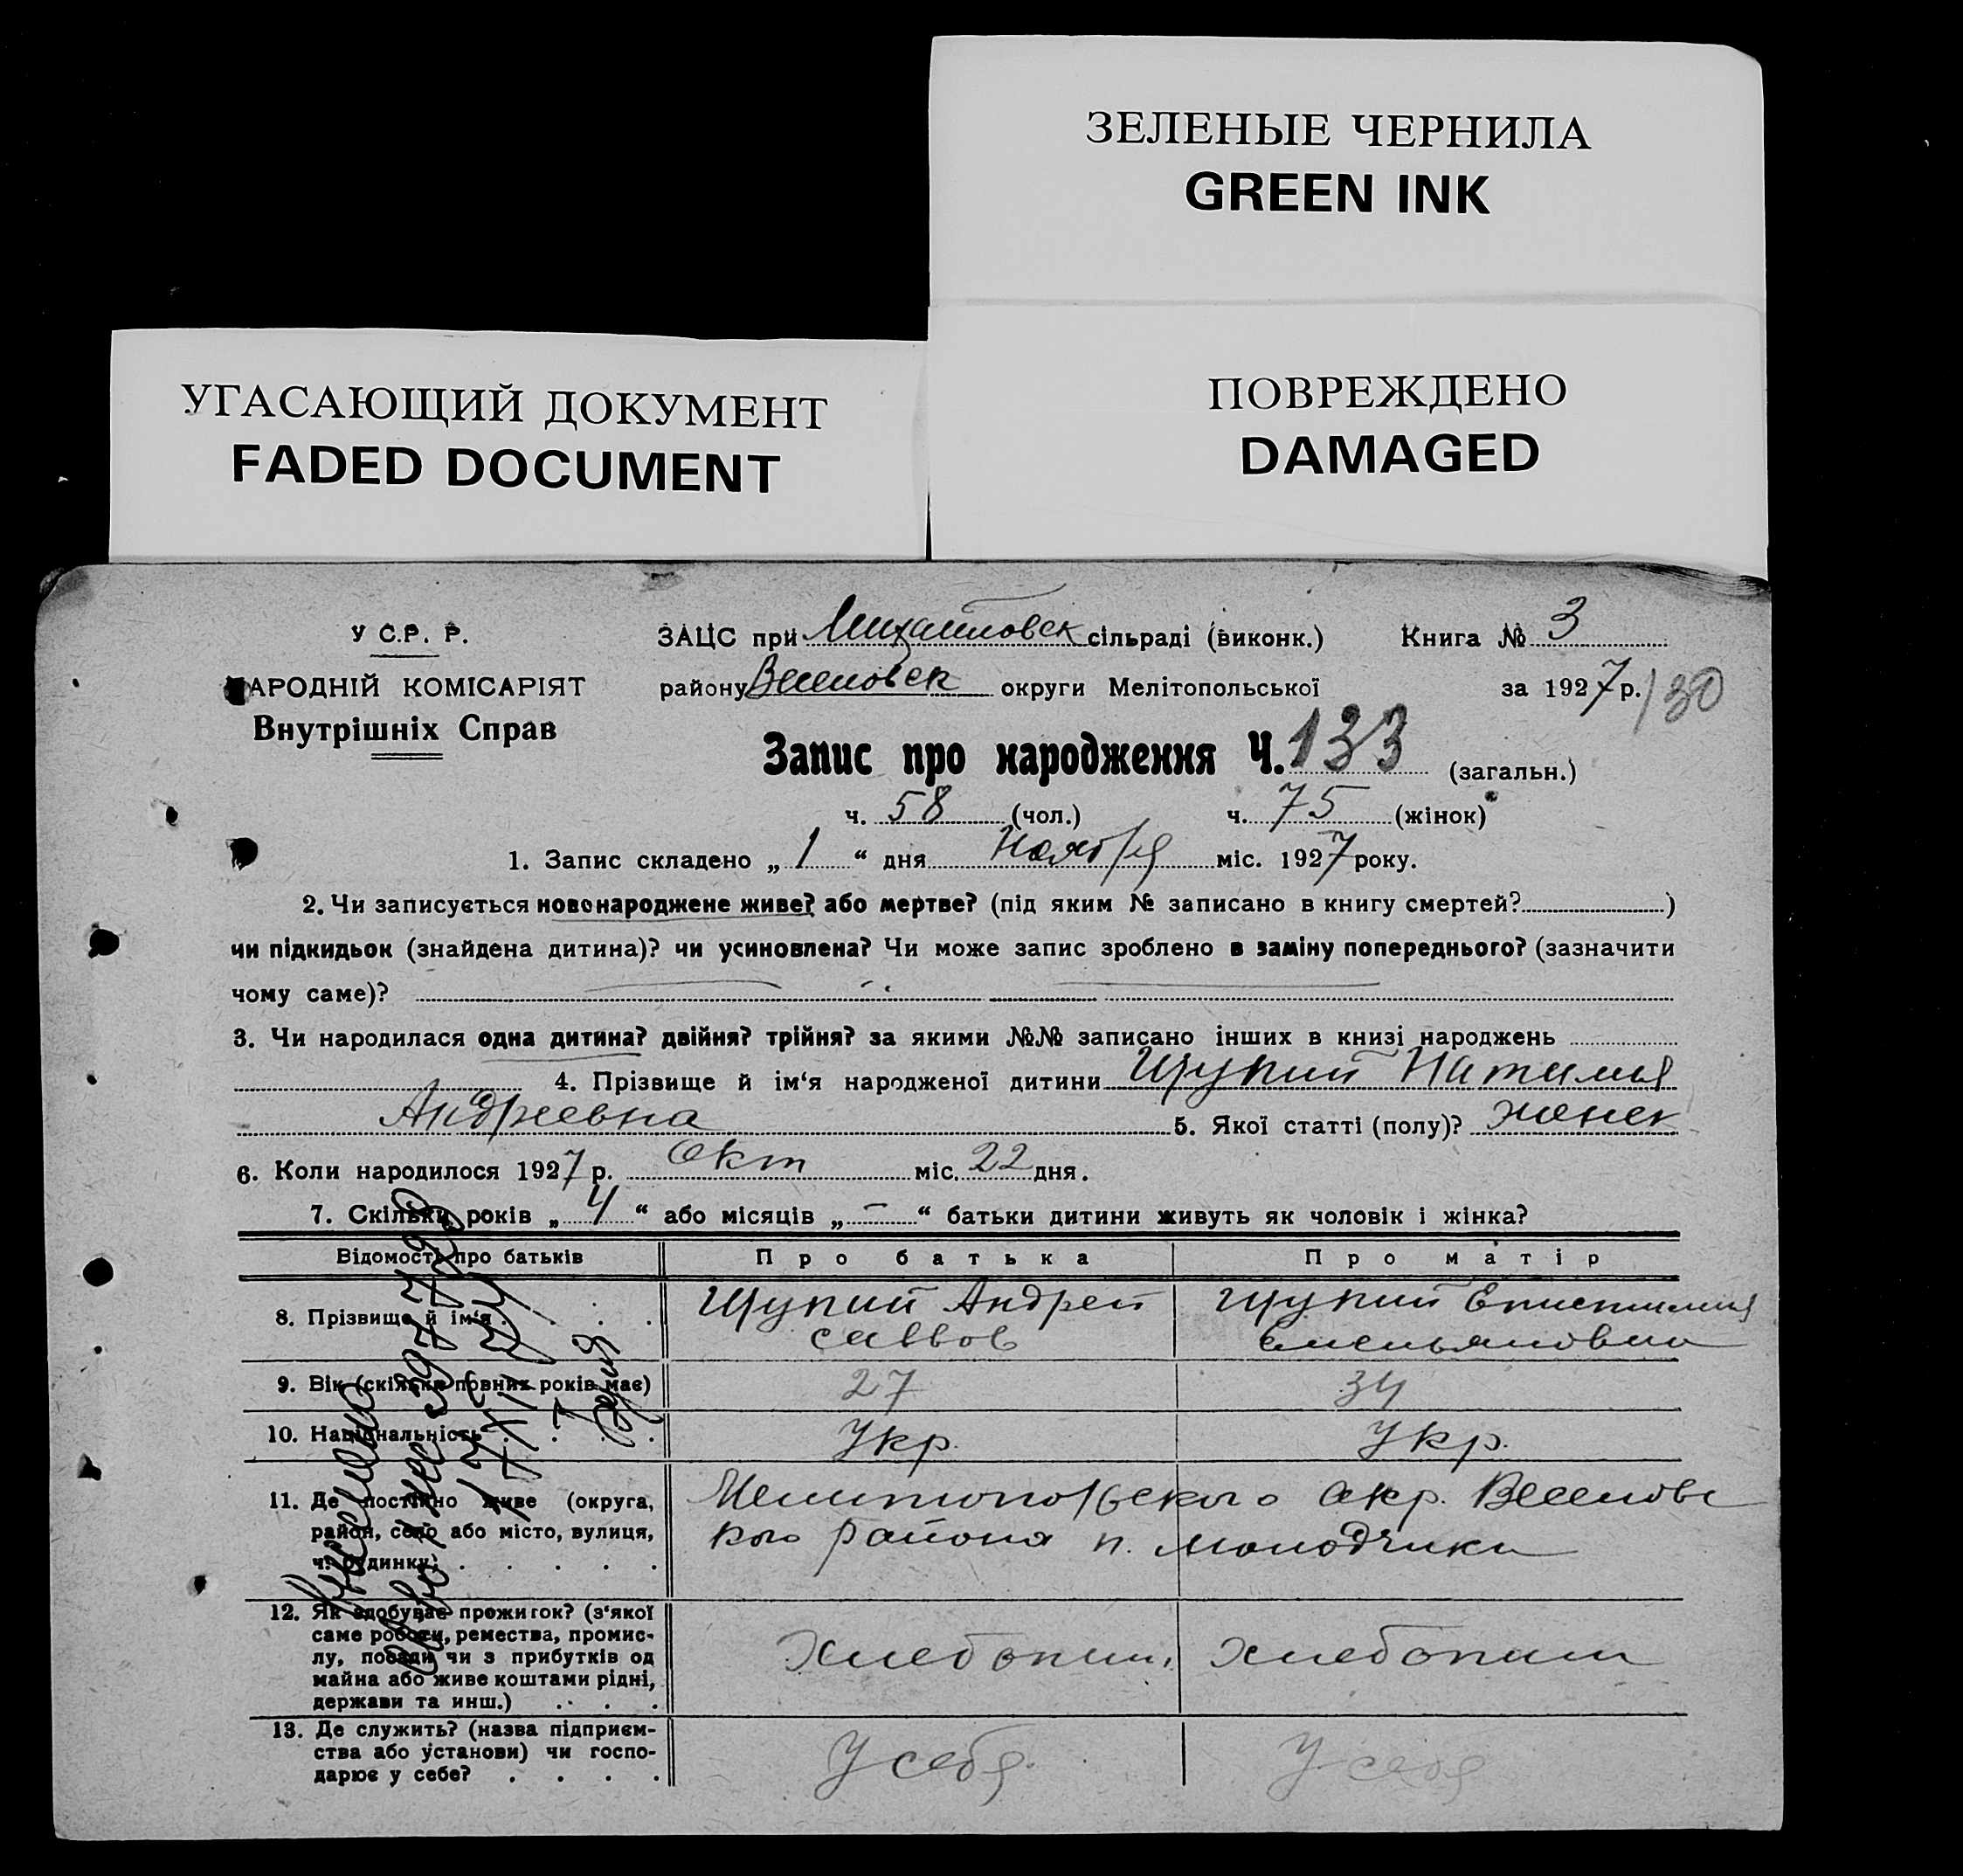 ЗЕЛЕНЫЕ ЧЕРНИЛА
GREEN INK
УГАСАЮЩИЙ ДОКУМЕНТ
FADED DOCUMENT
ПОВРЕЖДЕНО
DAMAGED
У С.Р. Р.
НАРОДНІЙ КОМІСАРІЯТ
Внутрішніх Справ
ЗАЦС при Михайловск сільраді (виконк.) Книга № 3
району Веселовск округи Мелітопольської за 1927 р. /30
Запис про народження Ч. 133 (загальн.)
ч. 58 (чол.) ч. 75 (жінок)
1. Запис складено „ 1 “ дня Ноября міс. 1927 року.
2. Чи записується новонароджене живе? або мертве? (під яким № записано в книгу смертей? )
чи підкидьок (знайдена дитина)? чи усиновлена? Чи може запис зроблено в заміну попереднього? (зазначити
чому саме)?
3. Чи народилася одна дитина? двійня? трійня? за якими №№ записано інших в книзі народжень
4. Прізвище й ім‘я народженої дитини Щупий Наталия
Андреевна 5. Якої статті (полу)? женск
6. Коли народилося 1927 р. Окт міс. 22 дня.
7. Скільки років „ 4 “ або місяців „ - “ батьки дитини живуть як чоловік і жінка?
Відомості про батьків Про батька Про матір
8. Прізвище й ім‘я Щупий Андрей Щупий Епистимия
Саввов Емельяновна
9. Вік (скільки повних років має) 27 34
10. Національність Укр. Укр.
11. Де постійно живе (округа, Мелитопольского окр. Веселовс
район, село або місто, вулиця, кого района п. Молодчики
ч. будинку)
12. Як здобуває прожиток? (з‘якої
саме роботи, ремества, промис-
лу, посади чи з прибутків од Хлебопаш. Хлебопаш
майна або живе коштами рідні,
держави та инш.)
13. Де служить? (назва підприєм-
ства або установи) чи госпо- У себя. У себя
дарює у себе?